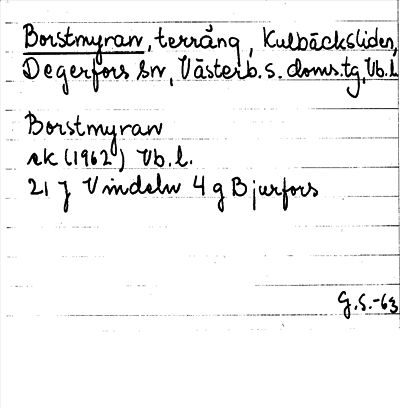 Borstmyran, terräng, Kulbäcksliden,
Degerfors sn, Västerb. s. doms. tg, Vb. l.
Borstmyran
ek (1962) Vb. l.
21 J Vindeln 4 g Bjurfors
G.S.-63